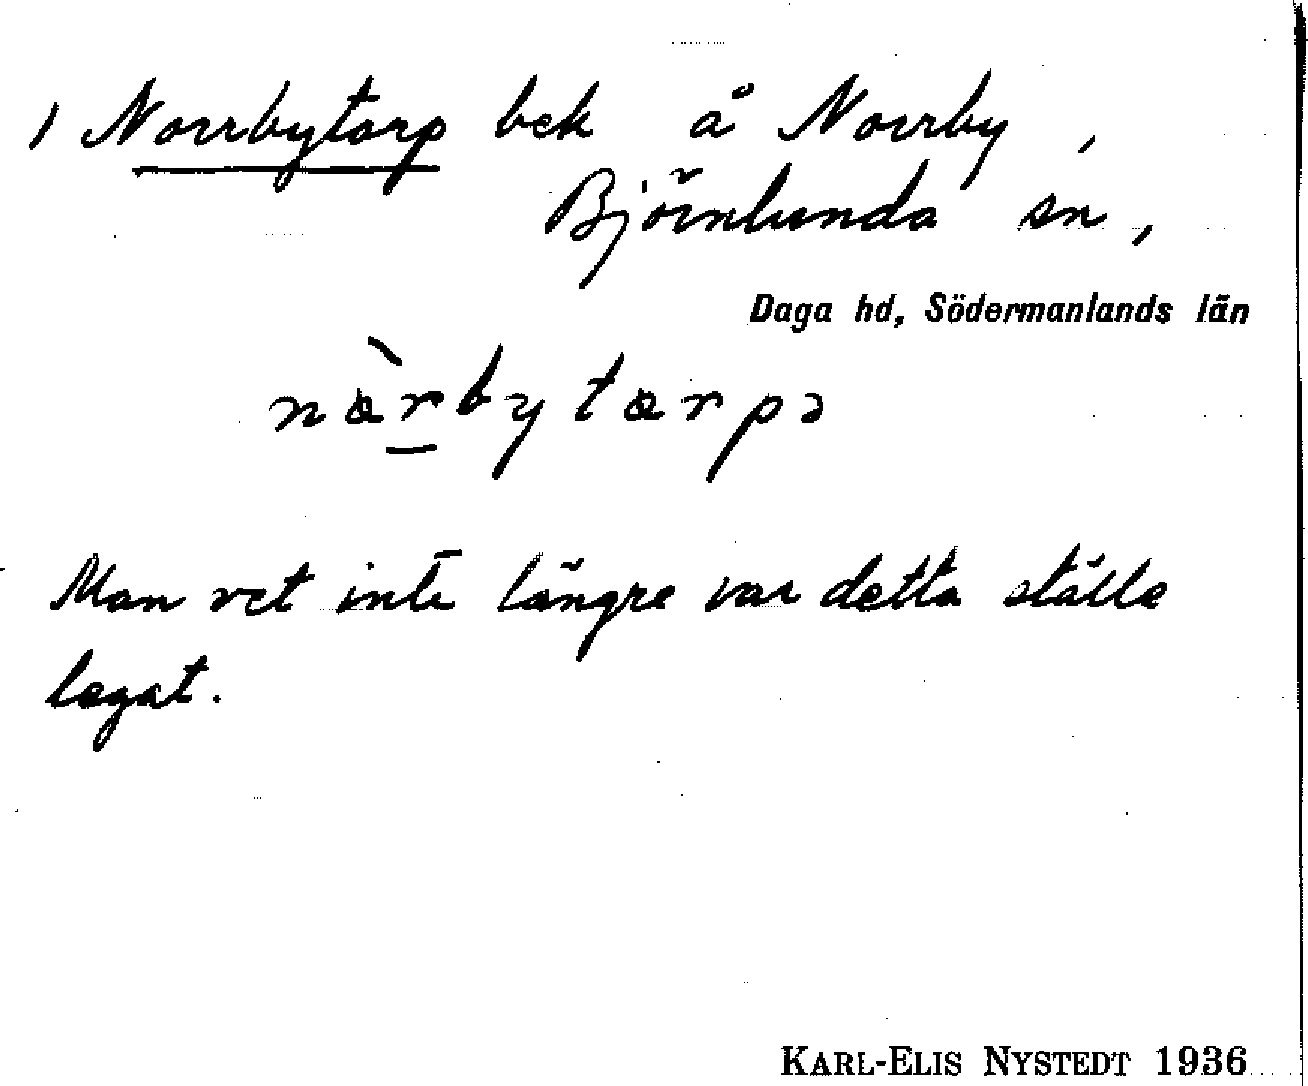 1 Norrbytorp bek å Norrby,
Björnlunda sn,
Daga hd, Södermanlands län
Man vet inte längre var detta ställe
legat.
KARL-ELIS NYSTEDT 1936